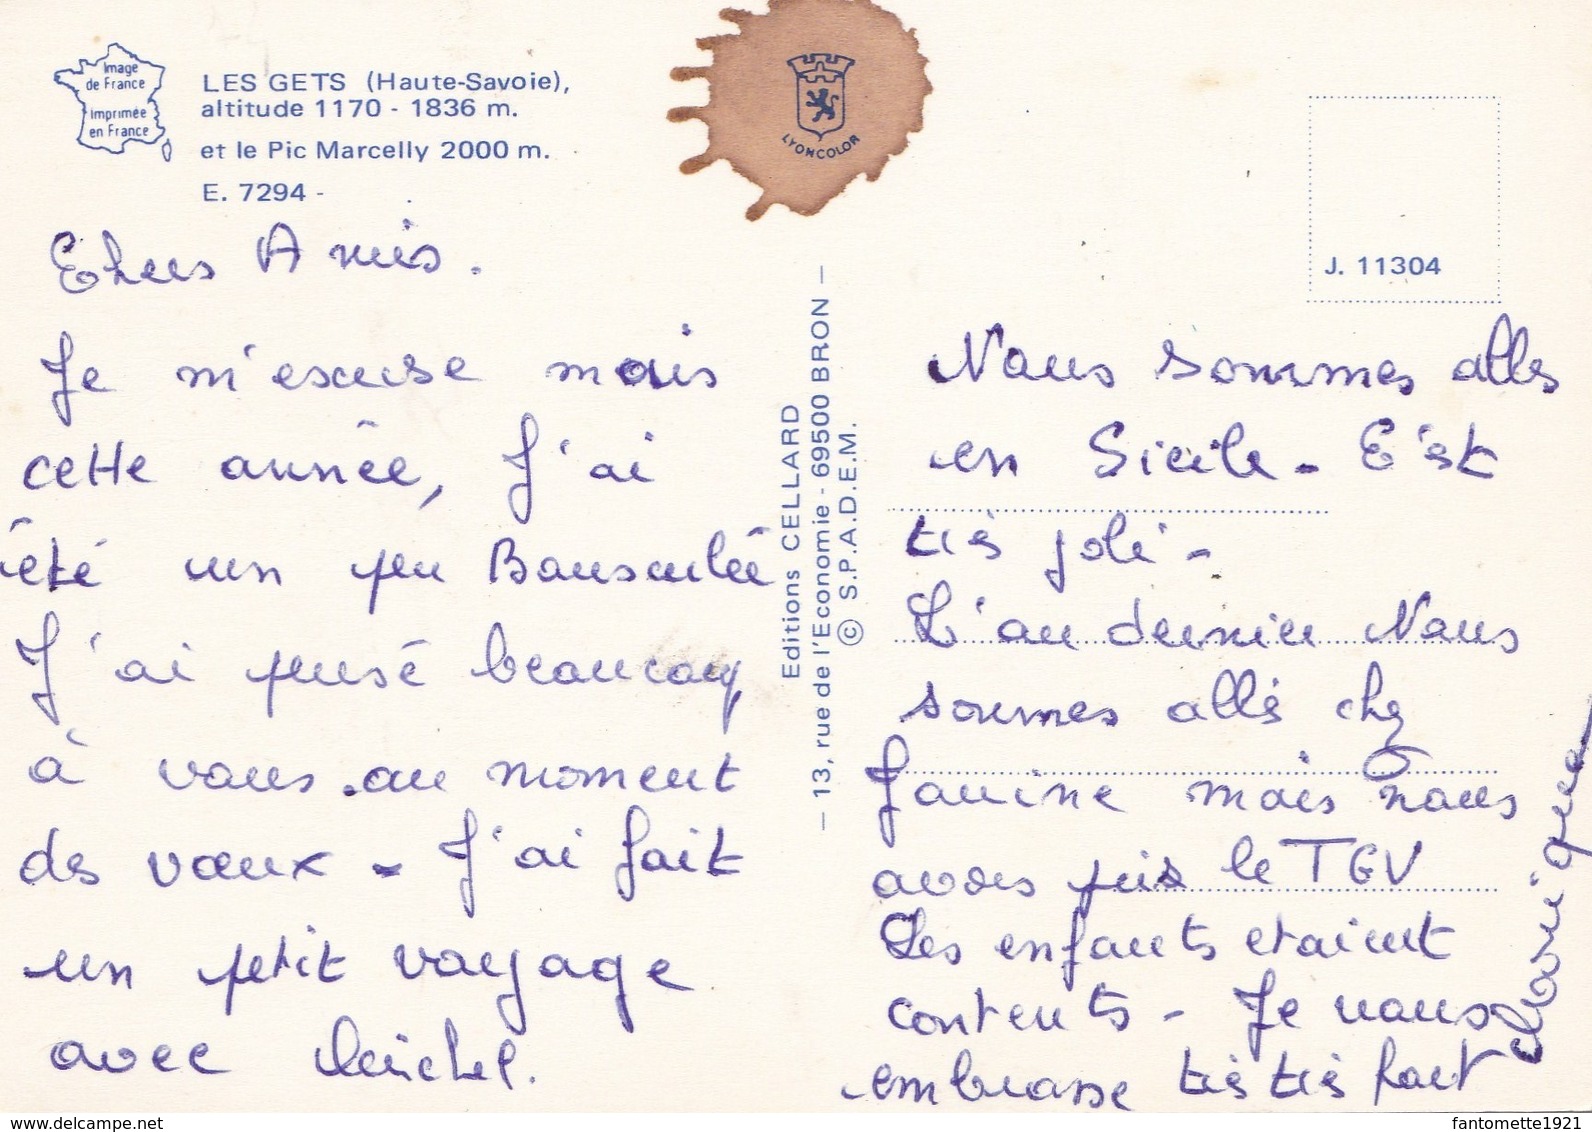 Image
de France
imprimée
en France
LES GETS (Haute-Savoie),
altitude 1170 - 1836 m.
et le Pic Marcelly 2000 m.
E. 7294 -
LYONCOLOR
J. 11304
Editions CELLARD
— 13, rue de l'Economie - 69500 BRON —
© S.P.A.D.E.M.
Chers Amis.
Je m'excuse mais
cette année, J'ai
été un peu Bousculée
J'ai pensé beaucoup
à vous au moment
des vœux - J'ai fait
un petit voyage
avec Michel.
Nous sommes allés
en Sicile - C'est
très joli -
L'an dernier Nous
sommes allés chez
Janine mais nous
avons pris le TGV
Les enfants etaient
contents - Je vous
embrasse très très fort
Monique
delcampe.net
fantomette1921